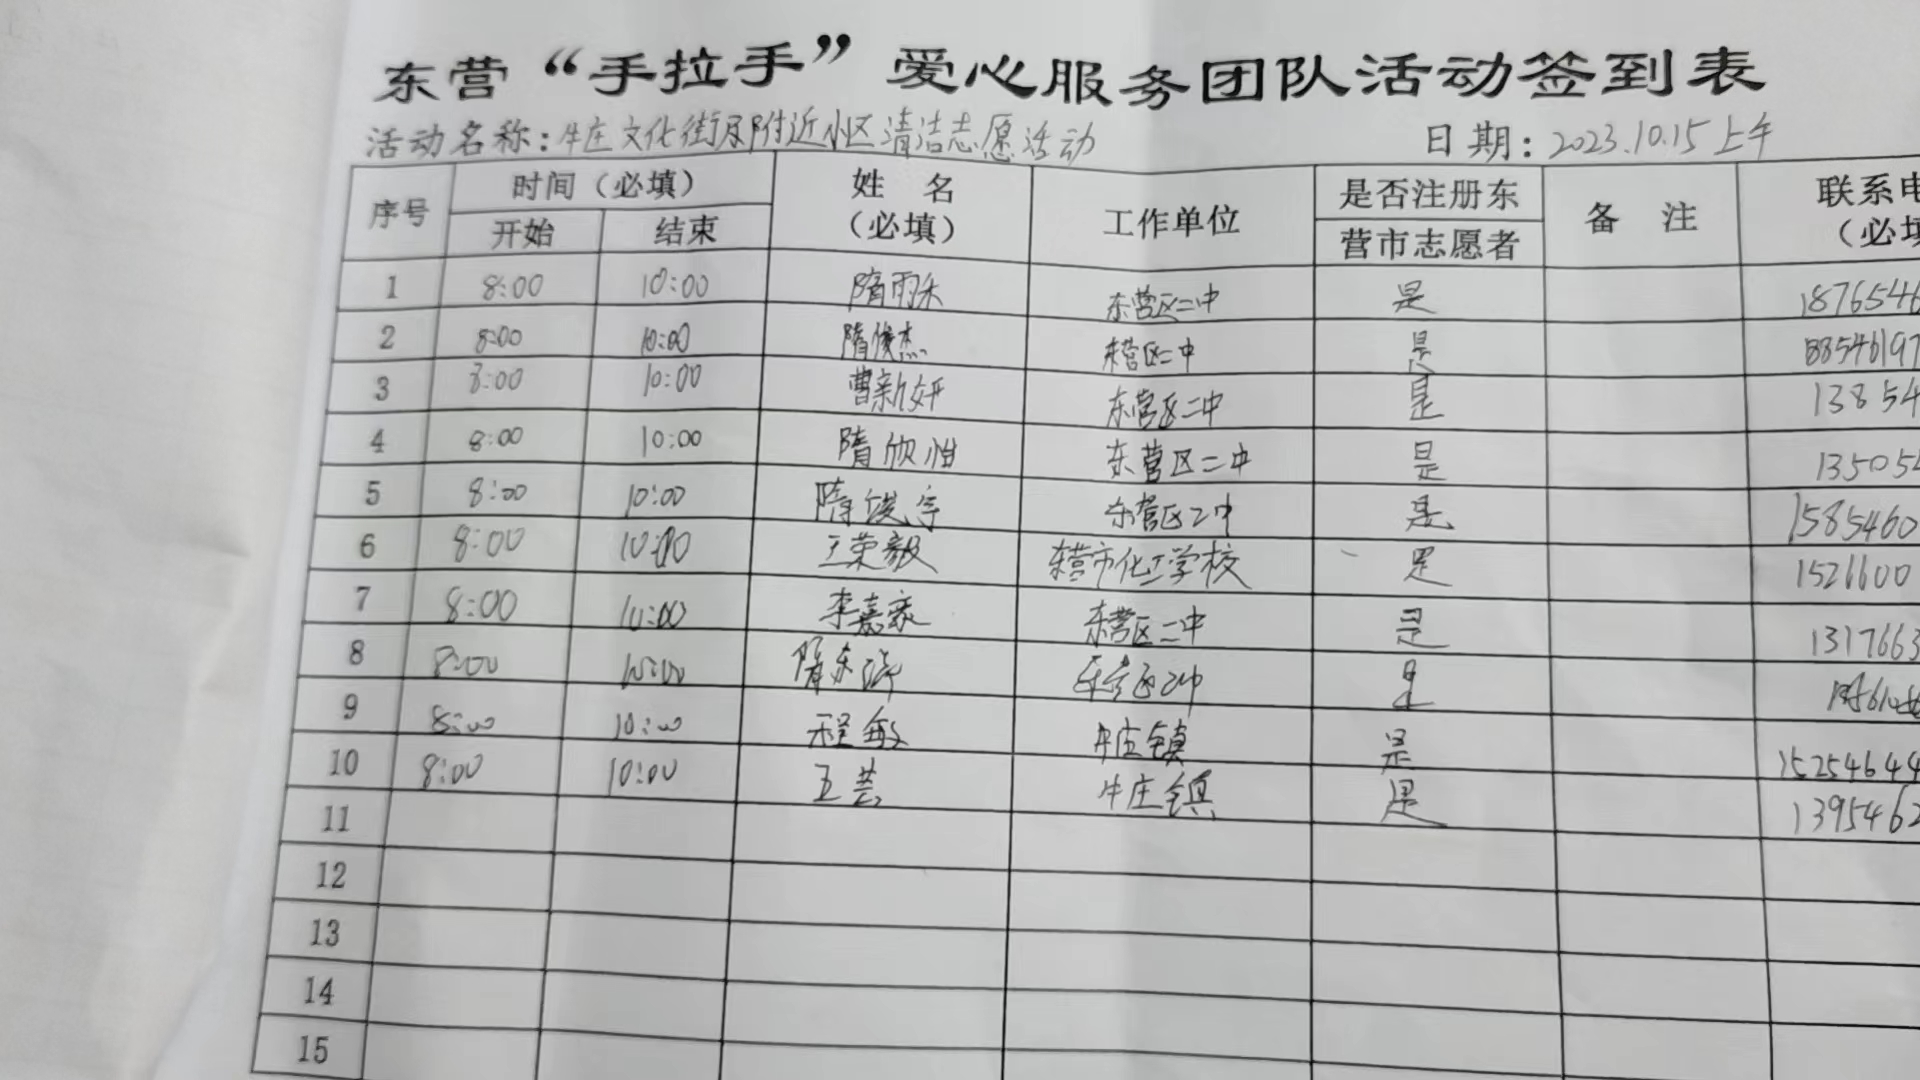 东营“手拉手”爱心服务团队活动签到表
活动名称：牛庄文化街及附近小区清洁志愿活动 日期：2023.10.15上午
序号 时间（必填） 姓名（必填） 工作单位 是否注册东营市志愿者 备注 联系电（必填
开始 结束
1 8:00 10:00 隋雨禾 东营区二中 是 1876546
2 8:00 10:00 隋俊杰 东营区二中 是 88546197
3 8:00 10:00 曹新妍 东营区二中 是 13854
4 8:00 10:00 隋欣 东营区二中 是 13505
5 8:00 10:00 隋俊宇 东营区二中 是 1585460
6 8:00 10:00 王荣毅 东营市化工学校 是 1526600
7 8:00 10:00 李嘉豪 东营区二中 是 1317663
8 8:00 10:00 隋东 东营区二中 是
9 8:00 10:00 程敏 牛庄镇 是 15254644
10 8:00 10:00 王芸 牛庄镇 是 1395462
11
12
13
14
15